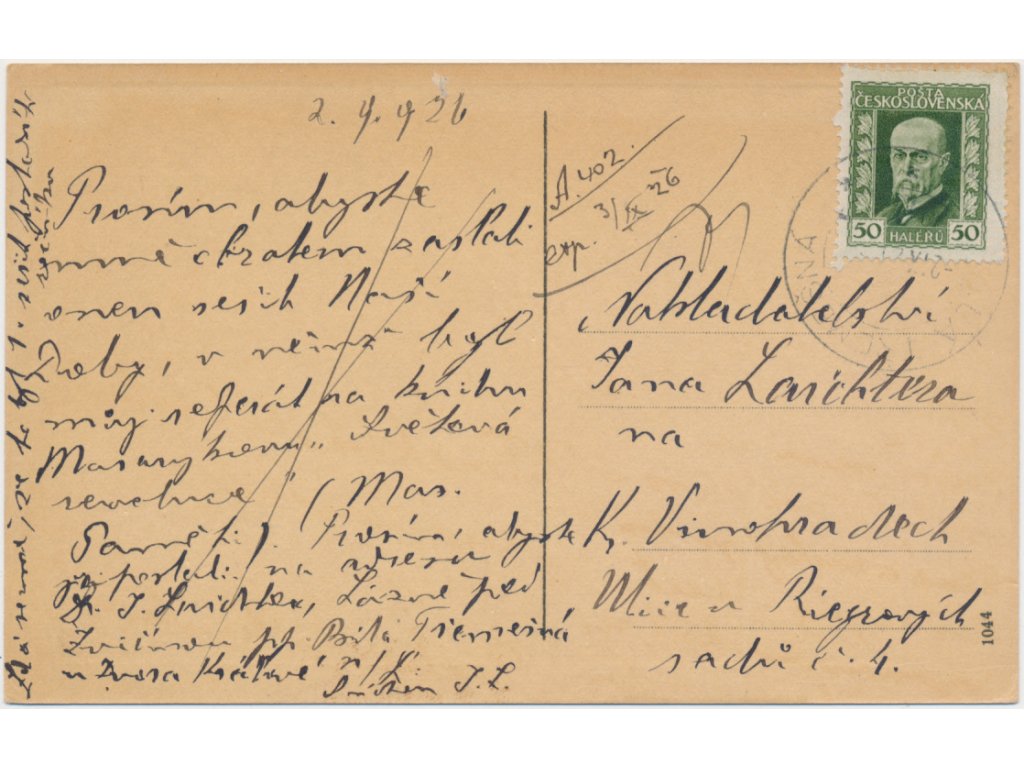 2. 9. 926
Prosím, abyste
mně obratem zaslali
onen sešit Naší
Doby, v němž byl
můj referát na knihu
Masarykovu „Světová
revoluce" (Mas.
Paměti). Prosím, abyste
jej poslali na adresu
Lázně pod
Zvičinou pp. Bílá Třemešná
u Dvora Králové n/L.
J. L.
že to byl 1. sešit
ročníku
A. 402.
exp. 3/IX 26
POŠTA
ČESKOSLOVENSKÁ
50 HALÉŘŮ 50
Nakladatelství
Jana Laichtera
na
K. Vinohradech
Ulice u Riegrových
sadů č. 4.
1044